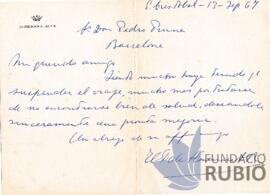 17-Sep 67
ALMIRANTE, ALTA
Sr Don Pedro
Barcelona
Mi querido amigo
Siento mucho haya tenido q
suspender el viaje, mucho mas por tratarse
de no encontrarse bien de salud, deseandole
sinceramente una pronta mejoria.
Un abrazo de su affº amigo
FUNDACIÓN
RUBIÓ